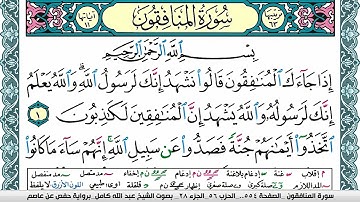 سورة المنافقون
بِسْمِ اللَّهِ الرَّحْمَٰنِ الرَّحِيمِ
إِذَا جَاءَكَ الْمُنَافِقُونَ قَالُوا نَشْهَدُ إِنَّكَ لَرَسُولُ اللَّهِ وَاللَّهُ يَعْلَمُ
إِنَّكَ لَرَسُولُهُ وَاللَّهُ يَشْهَدُ إِنَّ الْمُنَافِقِينَ لَكَاذِبُونَ ١
اتَّخَذُوا أَيْمَانَهُمْ جُنَّةً فَصَدُّوا عَن سَبِيلِ اللَّهِ إِنَّهُمْ سَاءَ مَا كَانُوا
سورة المنافقون - الصفحة ٥٥٤ - الحزب ٥٦ - الجزء ٢٨ - بصوت الشيخ عبد الله كامل - برواية حفص عن عاصم